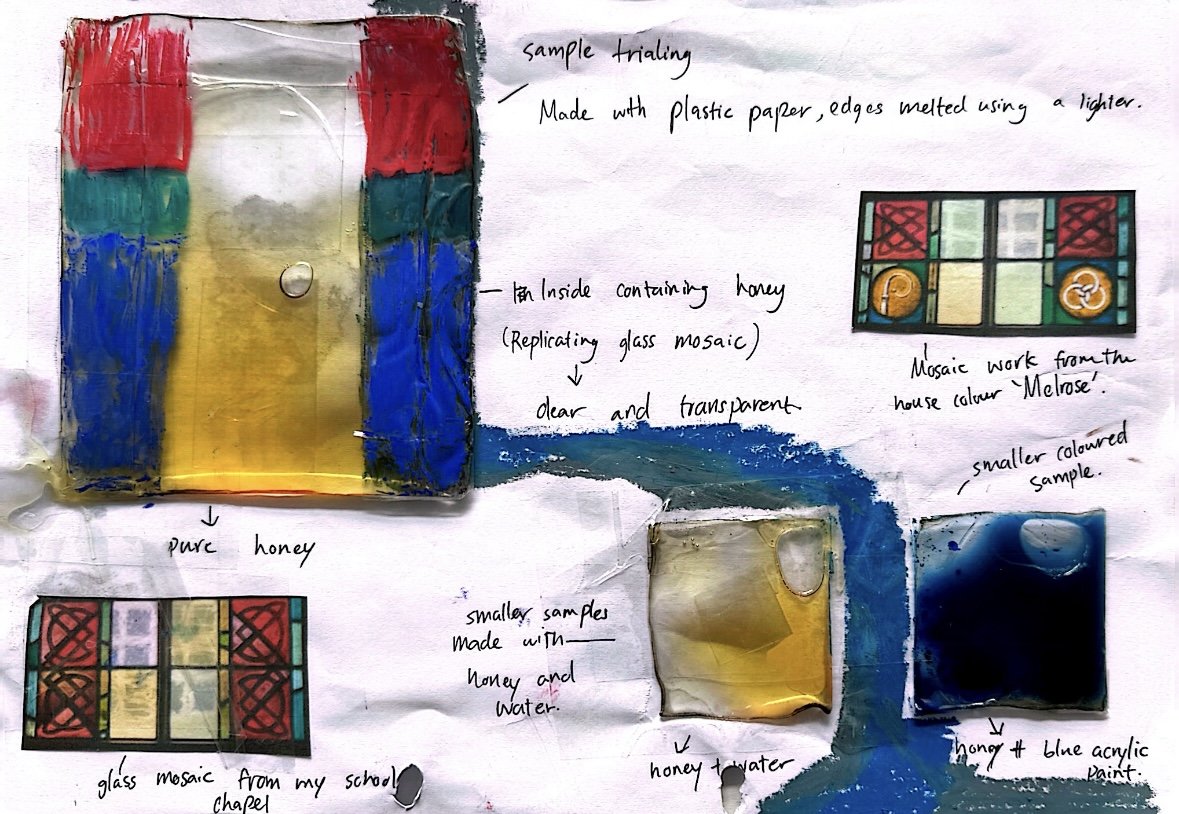 sample trialing
Made with plastic paper, edges melted using a lighter.
Inside containing honey
(Replicating glass mosaic)
clear and transparent
Mosaic work from the
house colour 'Melrose'.
smaller coloured
sample.
pure honey
smaller samples
made with
honey and
water.
honey + water
honey + blue acrylic
paint.
glass mosaic from my school
chapel